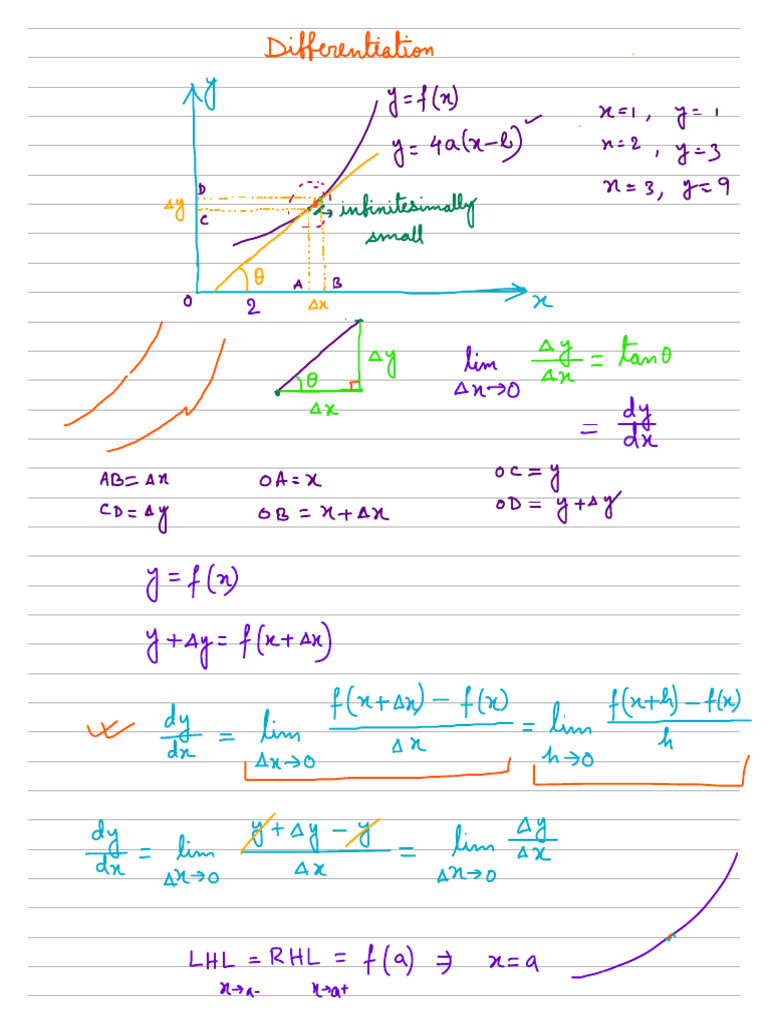 Differentiation
y
y = f(x)
y = 4a(x-h)
x=1, y = 1
x=2, y=3
x=3, y=9
D
Δy
C
infinitesimally
small
θ
A B
0 2 Δx x
θ Δy
Δx
lim Δx→0 Δy/Δx = tanθ
= dy/dx
AB = Δx OA = x OC = y
CD = Δy OB = x + Δx OD = y + Δy
y = f(x)
y + Δy = f(x + Δx)
dy/dx = lim Δx→0 (f(x + Δx) - f(x))/Δx = lim h→0 (f(x+h) - f(x))/h
dy/dx = lim Δx→0 (y + Δy - y)/Δx = lim Δx→0 Δy/Δx
LHL = RHL = f(a) ⇒ x = a
x→a- x→a+